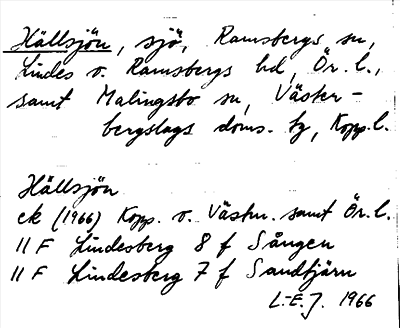 Hällsjön, sjö, Ramsbergs sn,
Lindes o. Ramsbergs hd, Ör. l.,
samt Malingsbo sn, Väster-
bergslags doms. tg, Kopp. l.
Hällsjön
ek (1966) Kopp. o. Västm. samt Ör. l.
11 F Lindesberg 8 f Sången
11 F Lindesberg 7 f Sandtjärn
L-E. J. 1966